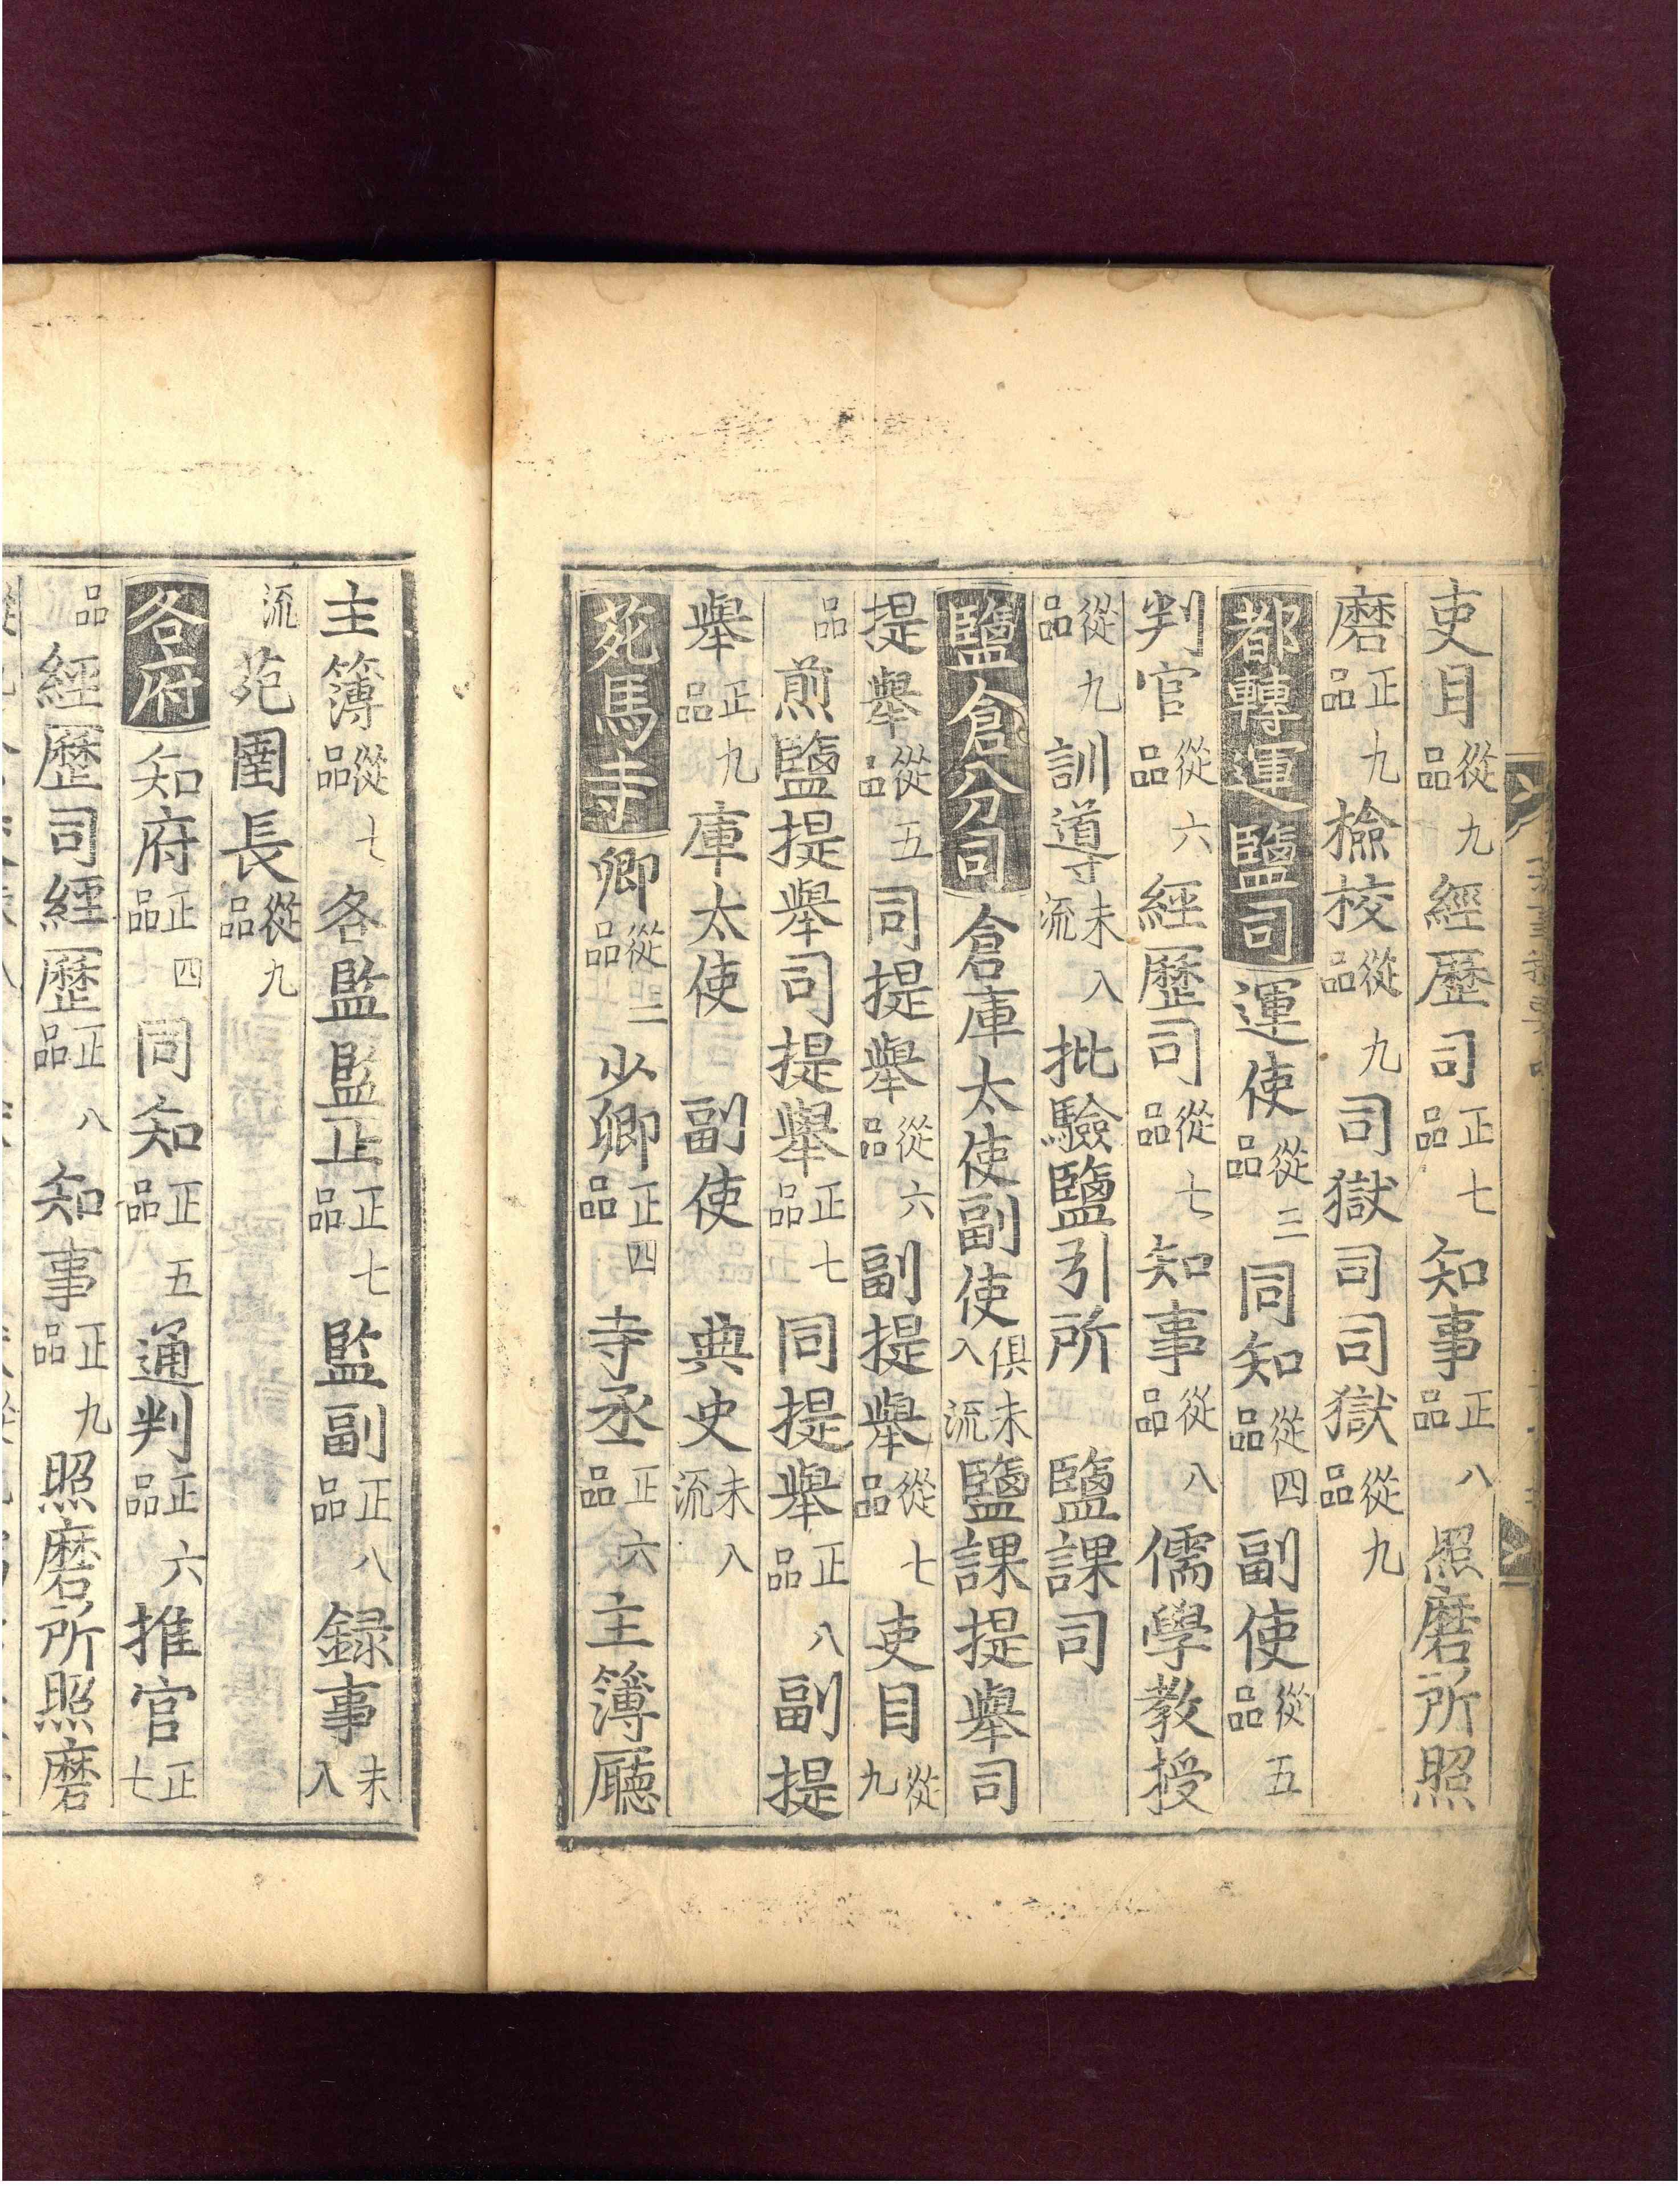 吏目從九品經歷司正七品知事正八品照磨所照
磨正九品檢校從九品司獄司司獄從九品
都轉運鹽司運使從三品同知從四品副使從五品
判官從六品經歷司從七品知事從八品儒學教授
從九品訓導未入流批驗鹽引所鹽課司
鹽倉分司倉庫太使副使俱未入流鹽課提舉司
提舉從五品同提舉從六品副提舉從七品吏目從九
品煎鹽提舉司提舉正七品同提舉正八品副提
舉正九品庫太使副使典史未入流
苑馬寺卿從三品少卿正四品寺丞正六品主簿廳
主簿從七品各監監正正七品監副正八品録事未入
流苑圉長從九品
各府知府正四品同知正五品通判正六品推官正七
品經歷司經歷正八品知事正九品照磨所照磨